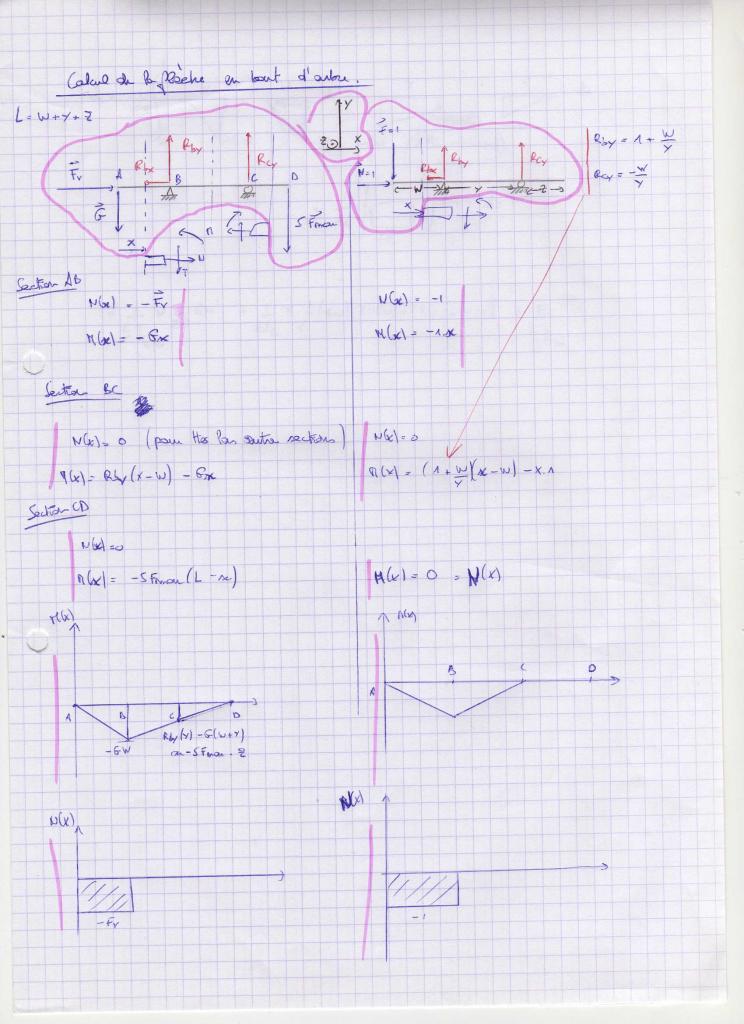 Calcul de la flèche en bout d'arbre.
L = W+Y+Z
Y
X
Z
A
B
C
D
Fr
G
Rbx
Rby
Rcy
5 Fmau
x
N
T
M
F=1
N=1
Rbx
Rby
Rcy
W
Y
Z
x
Rby = 1 + W/Y
Rcy = -W/Y
Section AB
N(x) = - Fr
M(x) = - Gx
N(x) = -1
M(x) = -1.x
Section BC
N(x) = 0 (pour ttes les autres sections)
M(x) = Rby (x-W) - Gx
N(x) = 0
M(x) = (1 + W/Y)(x-W) - x.1
Section CD
N(x) = 0
M(x) = -5Fmau (L-x)
M(x) = 0 = N(x)
M(x)
A
B
C
D
-GW
Rby(Y) - G(W+Y)
ou -5Fmau . Z
M(x)
A
B
C
D
N(x)
-Fr
N(x)
-1